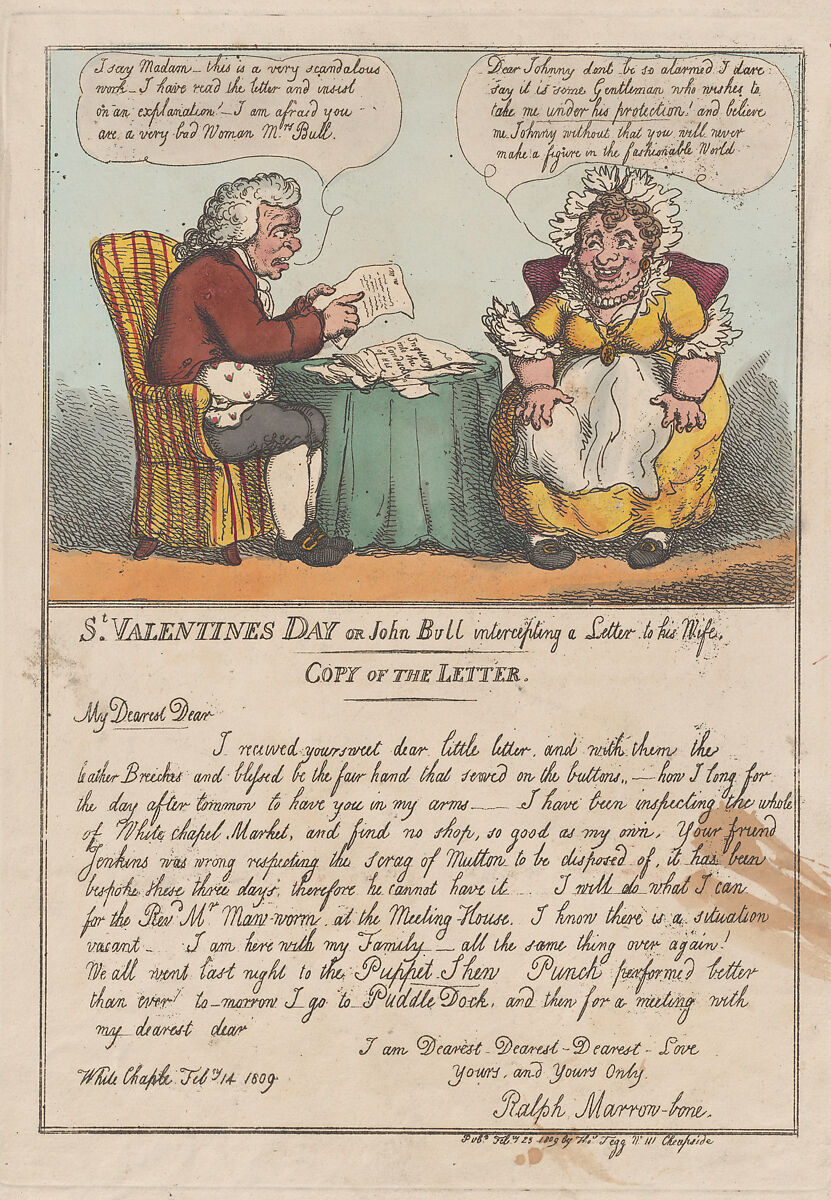 I say Madam - this is a very scandalous
work - I have read the letter and insist
on an explanation! - I am afraid you
are a very bad Woman Mrs Bull.
Dear Johnny dont be so alarmed I dare
say it is some Gentleman who wishes to
take me under his protection! and believe
me Johnny without that you will never
make a figure in the fashionable World
Inquiry
into the
Conduct
of the
St. VALENTINES DAY OR John Bull intercepting a Letter to his Wife.
COPY OF THE LETTER.
My Dearest Dear
I received yoursweet dear little letter, and with them the
leather Breeches and blessed be the fair hand that sewed on the buttons,, — how I long for
the day after tommorr to have you in my arms — — I have been inspecting the whole
of White chapel Market, and find no shop, so good as my own, Your friend
Jenkins was wrong respecting the scrag of Mutton to be disposed of, it has been
bespoke these three days, therefore he cannot have it _ I will do what I can
for the Revd Mr Maw-worm, at the Meeting House. I know there is a situation
vacant _ I am here with my Family — all the same thing over again!
We all went last night to the Puppet Shew Punch performed better
than ever! to-morrow I go to Puddle Dock, and then for a meeting with
my dearest dear
I am Dearest - Dearest - Dearest - Love
Yours, and Yours Only.
White Chaple Feby 14 1809
Ralph Marrow-bone.
Pubd Feby 25 1809 by Thos Tegg No 111 Cheapside